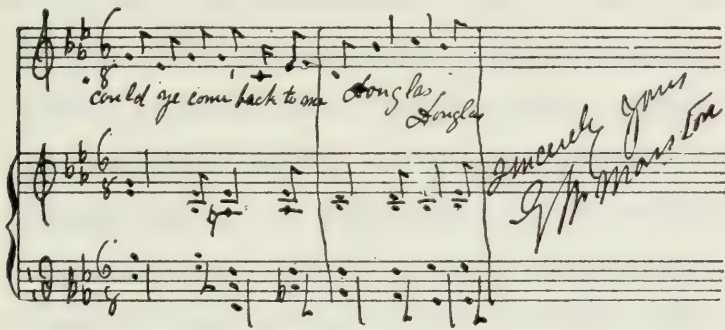 "Could ye come back to me Douglas
Douglas
Sincerely Yours
G W Marston